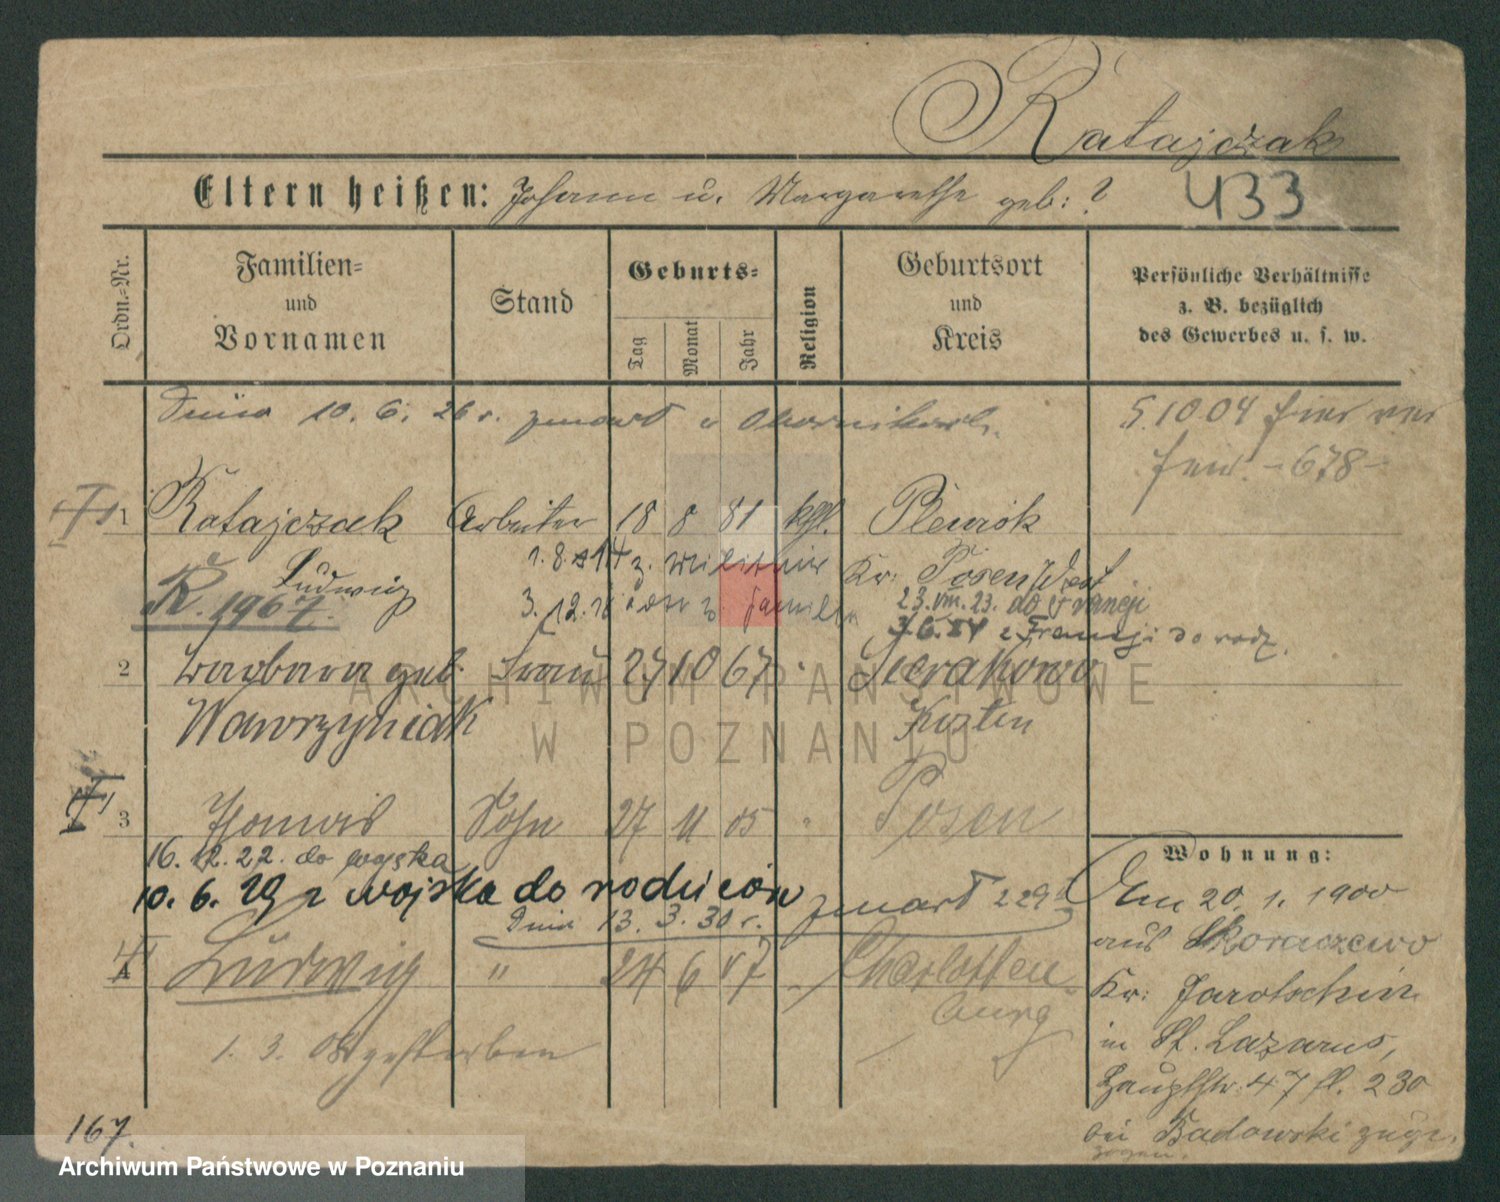 Ratajczak
Eltern heißen: Johann u. Margarethe geb: ?
433
Ordn.-Nr.
Familien-
und
Vornamen
Stand
Geburts-
Tag
Monat
Jahr
Religion
Geburtsort
und
Kreis
Persönliche Verhältnisse
z. B. bezüglich
des Gewerbes u. s. w.
Dnia 10. 6. 26 r. zmarł
5.10.04
678
1 Ratajczak Arbeiter 18 8 81 kgl.
Ludwig
1. 8. 14 z. Militair
Kr: Posen West
R. 1967.
3. 12. 18 z. Familie
23. VIII. 23. do Francji
z Francji do rodz.
2 Barbara geb. Frau 27 10 67 "
Wawrzyniak
Kosten
3 Thomas Sohn 27 11 05 " Posen
16. 12. 22. do wojska
10. 6. 29 z wojska do rodziców
Dnia 13. 3. 30 r. zmarł
4 Ludwig " 24 6 07 Charlotten
burg
1. 3. 08 gestorben
Wohnung:
Am 20. 1. 1900
aus Skoraczewo
Kr: Jarotschin
in St. Lazarus,
Hauptstr. 47 fl. 230
bei Badowski zuge-
zogen.
167.
ARCHIWUM PAŃSTWOWE
W POZNANIU
Archiwum Państwowe w Poznaniu